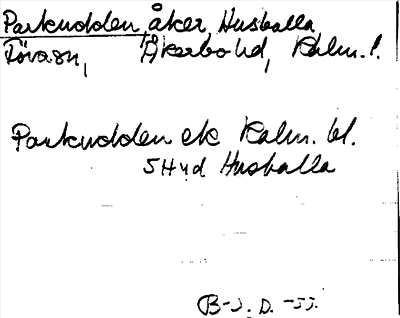 Parkudden, åker, Husballa,
Tövasn, Åkerbo hd, Kalm. l.
Parkudden ek Kalm. bl.
5 H yd Husballa
B-J. D. -55.